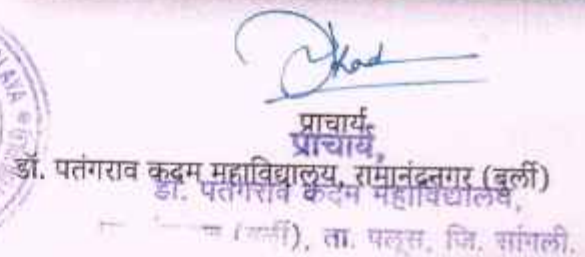 प्राचार्य,
प्राचार्य,
डॉ. पतंगराव कदम महाविद्यालय, रामानंदनगर (बुर्ली)
डॉ. पतंगराव कदम महाविद्यालय,
(बुर्ली), ता. पलूस, जि. सांगली.